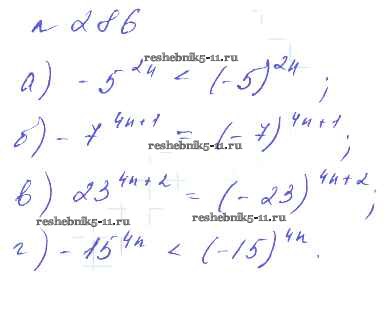 № 286
reshebnik5-11.ru
а) -5^{2n} < (-5)^{2n};
б) -7^{4n+1} = (-7)^{4n+1};
reshebnik5-11.ru
в) 23^{4n+2} = (-23)^{4n+2};
reshebnik5-11.ru reshebnik5-11.ru
г) -15^{4n} < (-15)^{4n}.